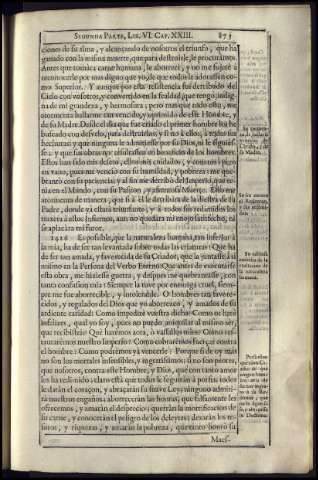 SEGUNDA PARTE, LIB. VI. CAP. XXIII. 875
ciones de su alma, y alcançando de nosotros el triunfo, que ha
ganado con la misma muerte, que para destruirle, le procuramos.
Antes que tomára carne humana, le aborreci, y no me sujeté à
reconocerle por mas digno que yo, de que todos le adorassen co-
mo Superior. Y aunque por esta resistencia fui derribado del
Cielo con vosotros, y convertido en la fealdad, que tengo, indig-
na de mi grandeza, y hermosura; pero mas que todo esto, me
atormenta hallarme tan vencido, y oprimido de este Hombre, y
de su Madre. Desde el dia que fue criado el primer hombre los he
buscado con desvelo, para destruirlos; y si no à ellos, à todas sus
hechuras y que ninguna le admitiesse por su Dios, ni le siguies-
se; y que sus obras no resultassen en beneficio de los hombres.
Estos han sido mis deseos, estos mis cuidados, y conatos; pero
en vano, pues me venció con su humildad, y pobreza; me que-
brantó con su paciencia; y al fin me derribó del Imperio, que te-
nia en el Mundo, con su Passion, y afrentosa Muerte. Esto me
atormenta de manera, que si à él le derribàra de la diestra de su
Padre, donde ya estará triunfante, y à todos sus redimidos los
traxera à estos Infiernos, aun no quedara mi enojo satisfecho, ni
se aplacára mi furor.
1426 Es possible, que la naturaleza humana, tan inferior à
la mia, ha de ser tan levantada sobre todas las criaturas! Que ha
de ser tan amada, y favorecida de su Criador, que la juntasse à sí
mismo en la Persona del Verbo Eterno! Que antes de executarse
esta obra, me hiziesse guerra, y despues me quebrantasse, con
tanta confusion mia! Siempre la tuve por enemiga cruel, siem-
pre me fue aborrecible, y intolerable. O hombres tan favore-
cidos, y regalados del Dios que yo aborrezco, y amados de su
ardiente caridad! Como impediré vuestra dicha? Como os haré
infelizes, qual yo soy, pues no puedo aniquilar el mismo sér,
que recibisteis? Què haremos aora, ò vassallos mios? Cómo res-
tauraremos nuestro Imperio? Como cobraremos fuerças contra
el hombre? Como podremos ya vencerle? Porque si de oy mas
no son los mortales insensibles, y ingratissimos; si no son peores,
que nosotros, contra este Hombre, y Dios, que con tanto amor
los ha redimido; claro está, que todos le seguirán à porfia; todos
le daràn el coraçon, y abraçarán su suave Ley; ninguno admiti-
rà nuestros engaños; aborreceràn las honras, que falsamente les
ofrecemos, y amarán el desprecio; querràn la mortificacion de
su carne, y conoceràn el peligro de los deleytes; dexarán los te-
soros, y riquezas, y amaràn la pobreza, que tanto honró su
Maes-